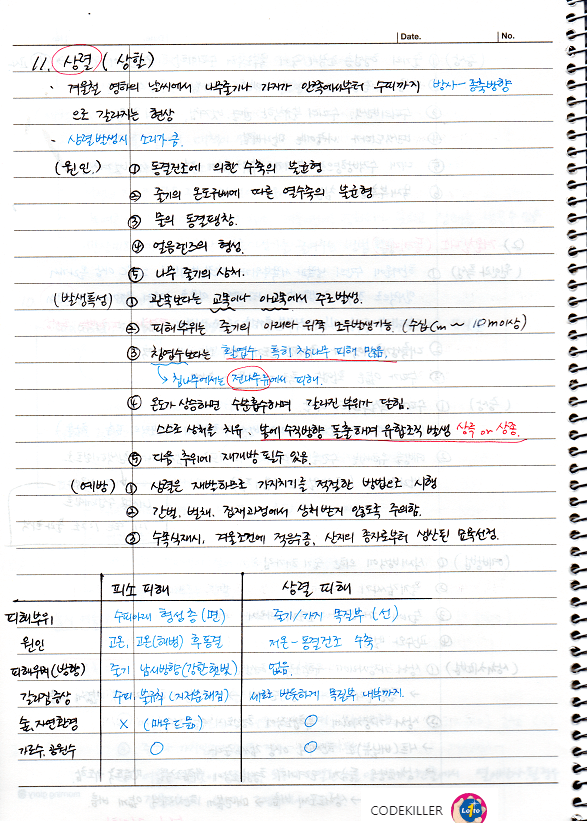 Date. No.
11. 상렬 (상할)
· 겨울철 영하의 날씨에서 나무줄기나 가지가 안쪽에서부터 수피까지 방사-종축방향
으로 갈라지는 현상
· 상렬발생시 소리가 큼.
(원인.) ① 동결건조에 의한 수축의 불균형
② 줄기의 온도구배에 따른 열수축의 불균형
③ 물의 동결팽창.
④ 얼음렌즈의 형성.
⑤ 나무 줄기의 상처.
(발생특성) ① 관목보다는 교목이나 아교목에서 주로발생.
② 피해부위는 줄기의 아래와 위쪽 모두발생가능. (수십cm ~ 10m이상)
③ 침엽수보다는 활엽수, 특히 참나무 피해 많음.
↳ 침엽에서는 전나무류에서 피해.
④ 온도가 상승하면 수분흡수하며 갈라진 부위가 닫힘.
스스로 상처를 치유, 봄에 수직방향 돌출하며 유합조직 발생 상륵 or 상종.
⑤ 다음 추위에 재개방 될수 있음.
(예방) ① 상렬은 재발하므로 가지치기를 적절한 방법으로 시행
② 간벌, 벌채, 집재과정에서 상처받지 않도록 주의함.
③ 수목식재시, 겨울조건에 적응수종, 산지의 종자로부터 생산된 묘목선정.
피소 피해 상렬 피해
피해부위 수피아래 형성층 (면) 줄기/가지 목질부 (선)
원인 고온, 고온(해빙) 후 동결 저온-동결건조 수축
피해위치(방향) 줄기 남서방향(강한햇빛) 없음.
갈라짐증상 수피 불규칙 (지저분해짐) 세로로 반듯하게 목질부 내부까지.
숲, 자연환경 X (매우드뭄) ○
가로수, 공원수 ○ ○
CODEKILLER
Lotto